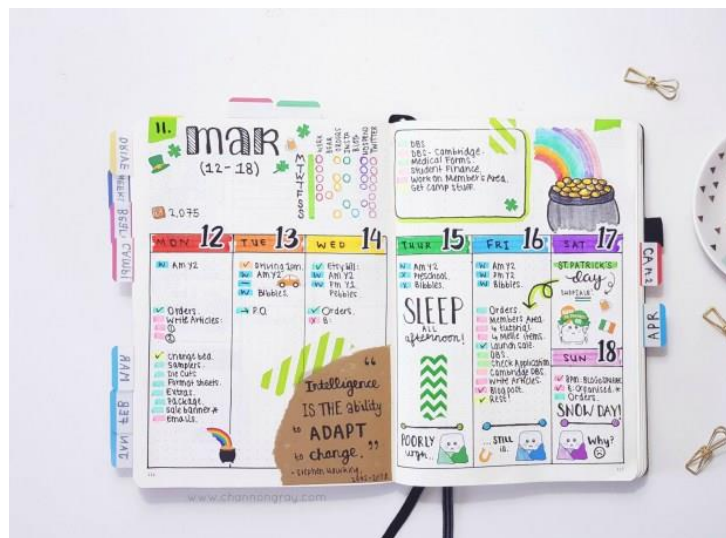 11.
MAR
(12-18)
WORK
BEAR
ORDERS
INSTA
BLOG
NOSPEND
TWITTER
M
T
W
T
F
S
S
2,075
DBS
DBS - Cambridge.
Medical Forms.
Student Finance.
Work on Member's Area.
Get camp stuff.
MON 12
W Am Y2
Orders.
Write Articles:
①
②
Change bed.
Samplers.
Die cuts
Format sheets.
Extras.
Package.
Sale banner*
Emails.
TUE 13
Driving 1am.
W Am Y2
W
W Bibbles.
→ P.O.
WED 14
Etsy bill:
W Am Y2
W Pm Y1
Pebbles.
Orders.
B:
"
Intelligence
IS THE ability
to ADAPT
to change."
- Stephen Hawking,
1942-2018
THUR 15
W Am Y2
Preschool.
Bibbles.
SLEEP
ALL
afternoon!
POORLY
urgh...
FRI 16
W Am Y2
W Pm Y2
W Bibbles.
Orders.
Members Area.
4 tutorial
4 Maile items.
Launch sale.
DBS.
Check Application
Cambridge DBS
Write Articles.
Blog post.
Rest!
...STILL
is.
SAT 17
ST. PATRICK'S
day
SHOP SALE
SUN 18
8PM:
E: Organised.
Orders.
SNOW DAY!
Why?
CAM2
APR
MAR
FEB
JAN
www.channongray.com